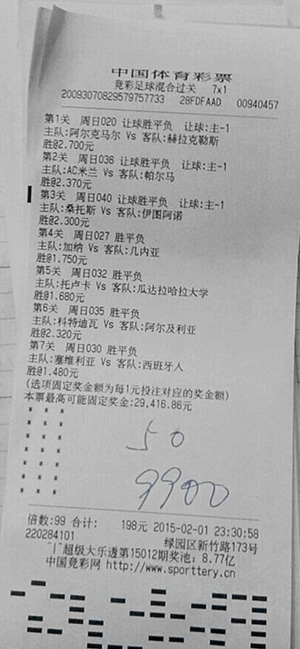 中国体育彩票
竞彩足球混合过关 7x1
20093070829579757733 28FDFAAD 00940457
第1关 周日020 让球胜平负 让球:主-1
主队:阿尔克马尔 Vs 客队:赫拉克勒斯
胜@2.700元
第2关 周日036 让球胜平负 让球:主-1
主队:AC米兰 Vs 客队:帕尔马
胜@2.370元
第3关 周日040 让球胜平负 让球:主-1
主队:桑托斯 Vs 客队:伊图阿诺
胜@2.300元
第4关 周日027 胜平负
主队:加纳 Vs 客队:几内亚
胜@1.750元
第5关 周日032 胜平负
主队:托卢卡 Vs 客队:瓜达拉哈拉大学
胜@1.680元
第6关 周日035 胜平负
主队:科特迪瓦 Vs 客队:阿尔及利亚
胜@2.320元
第7关 周日030 胜平负
主队:塞维利亚 Vs 客队:西班牙人
胜@1.480元
(选项固定奖金额为每1元投注对应的奖金额)
本票最高可能固定奖金:29,416.86元
50
9900
倍数:99 合计: 198元 2015-02-01 23:30:58
220284101 绿园区新竹路173号
超级大乐透第15012期奖池: 8.77亿
中国竞彩网 http://www.sporttery.cn